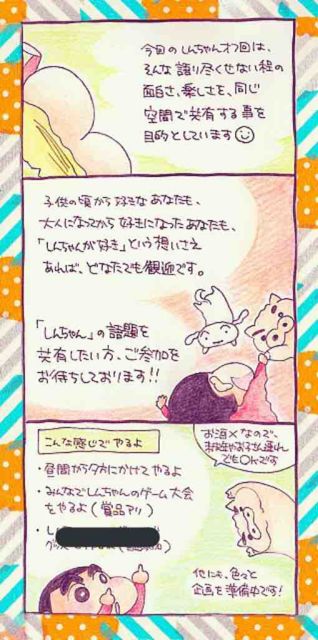 今回のしんちゃんオフ回は、
そんな語り尽くせない程の
面白さ、楽しさを、同じ
空間で共有する事を
目的としています
子供の頃から好きなあなたも、
大人になってから好きになったあなたも、
「しんちゃんが好き」という想いさえ
あれば、どなたでも歓迎です。
「しんちゃん」の話題を
共有したい方、ご参加を
お待ちしております!!
こんな感じでやるよ
・昼間から夕方にかけてやるよ
・みんなでしんちゃんのゲーム大会
をやるよ(賞品アリ)
・し
お酒×なので、
お子さん連れ
でもOKです
他にも、色々と
企画を準備中です!